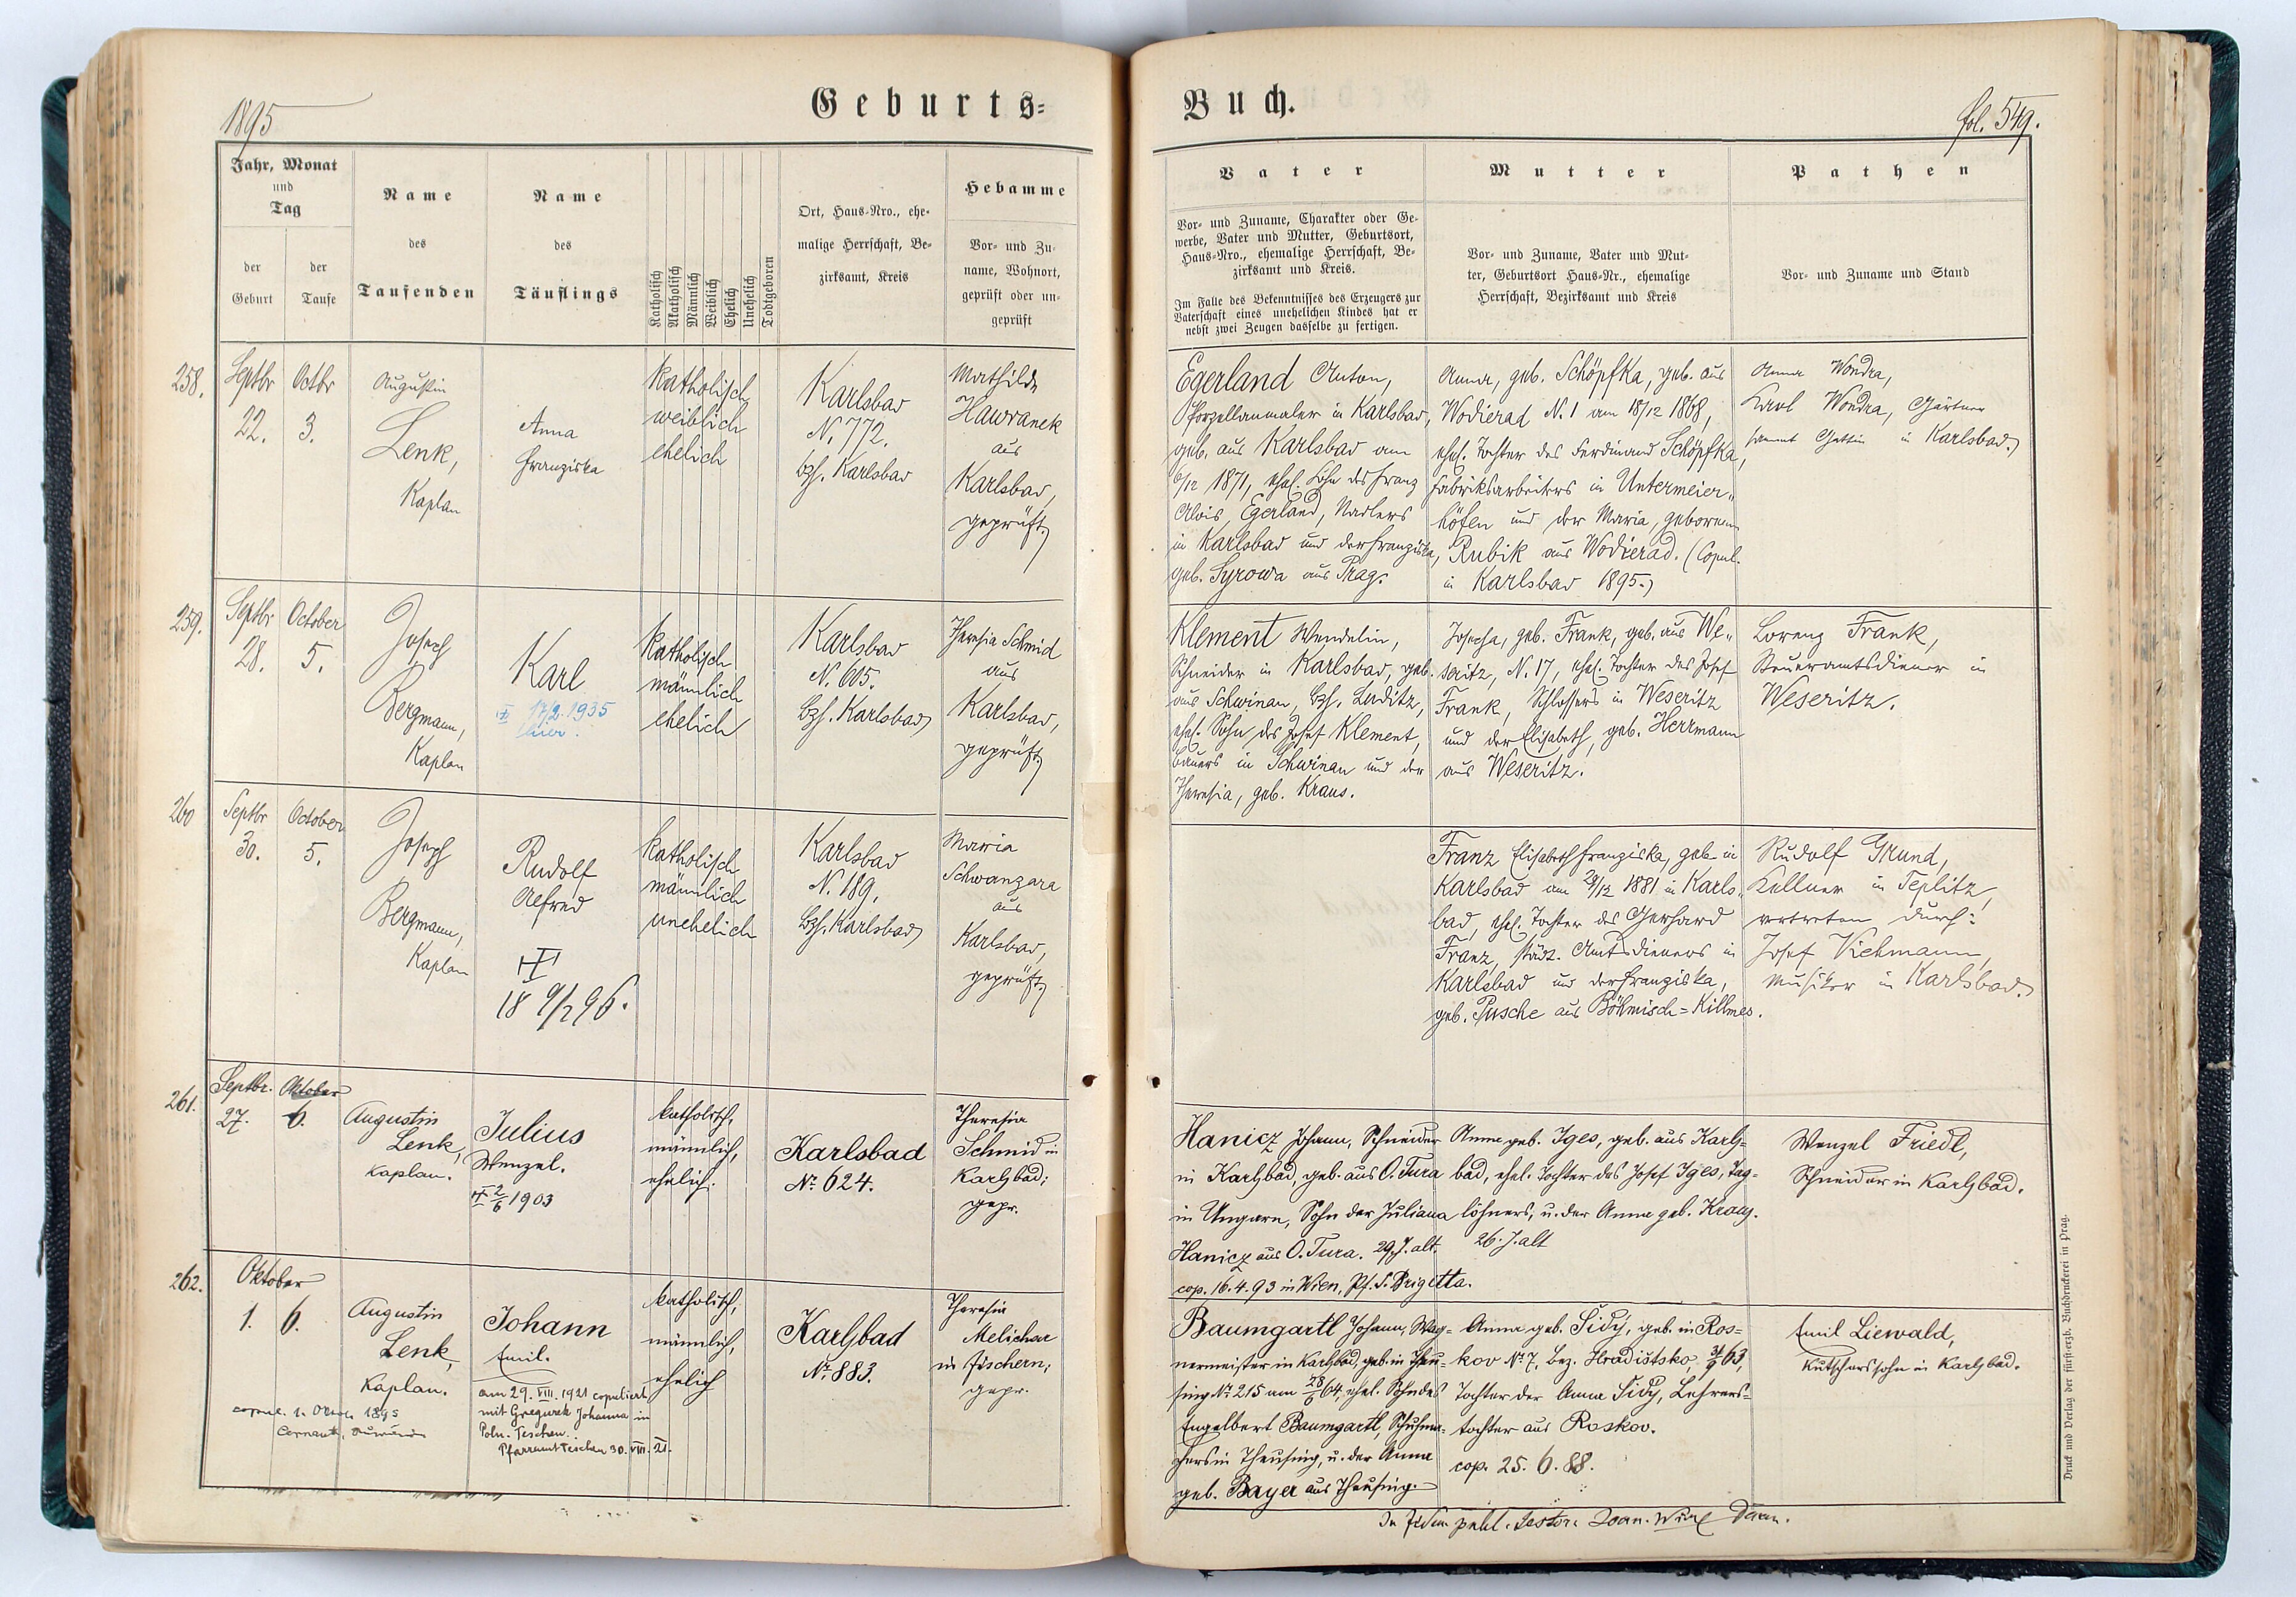 1895
Geburts-
Buch.
fol. 549.
Jahr, Monat
und
Tag
der
Geburt
der
Taufe
Name
des
Taufenden
Name
des
Täuflings
Katholisch
Akatholisch
Männlich
Weiblich
Ehelich
Unehelich
Todtgeboren
Ort, Haus-Nro., ehe-
malige Herrschaft, Be-
zirksamt, Kreis
Hebamme
Vor- und Zu-
name, Wohnort,
geprüft oder un-
geprüft
Vater
Vor- und Zuname, Charakter oder Ge-
werbe, Vater und Mutter, Geburtsort,
Haus-Nro., ehemalige Herrschaft, Be-
zirksamt und Kreis.
Im Falle des Bekenntnisses des Erzeugers zur
Vaterschaft eines unehelichen Kindes hat er
nebst zwei Zeugen dasselbe zu fertigen.
Mutter
Vor- und Zuname, Vater und Mut-
ter, Geburtsort Haus-Nr., ehemalige
Herrschaft, Bezirksamt und Kreis
Pathen
Vor- und Zuname und Stand
258.
Septbr
22.
Octbr
3.
Augustin
Lenk,
Kaplan
Anna
Franziska
katholisch
weiblich
ehelich
Karlsbad
N. 772.
bzh. Karlsbad
Mathilde
Hawranek
aus
Karlsbad,
geprüft
Egerland Anton,
Porzellanmaler in Karlsbad,
geb. aus Karlsbad am
6/12 1871, ehel. Sohn des Franz
Alois Egerland, Nadlers
in Karlsbad und der Franziska,
geb. Syrowa aus Prag.
Anna, geb. Schöpfka, geb. aus
Wodierad N. 1 am 18/12 1868,
ehel. Tochter des Ferdinand Schöpfka,
Fabriksarbeiters in Untermeier-
höfen und der Maria, geborene
Rubik aus Wodierad. (Copul.
in Karlsbad 1895.)
Anna Wondra,
Karl Wondra, Gärtner
sammt Gattin in Karlsbad.
259.
Septbr
28.
October
5.
Joseph
Bergmann,
Kaplan
Karl
17/2. 1935
hier.
katholisch
männlich
ehelich
Karlsbad
N. 605.
bzh. Karlsbad
Theresia Schmid
aus
Karlsbad,
geprüft
Klement Wendelin,
Schneider in Karlsbad, geb.
aus Schwinau, bzh. Luditz,
ehel. Sohn des Josef Klement,
Bauers in Schwinau und der
Theresia, geb. Kraus.
Josepha, geb. Frank, geb. aus We-
seritz, N. 17, ehel. Tochter des Josef
Frank, Schlossers in Weseritz
und der Elisabeth, geb. Herrmann
aus Weseritz.
Lorenz Frank,
Steueramtsdiener in
Weseritz.
260
Septbr
30.
October
5.
Joseph
Bergmann,
Kaplan
Rudolf
Alfred
18 9/2 96.
katholisch
männlich
unehelich
Karlsbad
N. 189.
bzh. Karlsbad
Maria
Schwanzara
aus
Karlsbad,
geprüft
Franz Elisabeth Franziska, geb. in
Karlsbad am 29/12 1881 in Karls-
bad, ehel. Tochter des Gerhard
Franz, städt. Amtsdieners in
Karlsbad und der Franziska,
geb. Pusche aus Böhmisch-Killmes.
Rudolf Grund,
Kellner in Teplitz,
vertreten durch:
Josef Viehmann,
Musiker in Karlsbad.
261.
Septbr.
27.
Oktober
6.
Augustin
Lenk,
Kaplan.
Julius
Wenzel.
2/6 1903
katholisch,
männlich,
ehelich.
Karlsbad
No 624.
Theresia
Schmid in
Karlsbad;
gepr.
Hanicz Johann, Schneider
in Karlsbad, geb. aus O. Tura
in Ungarn, Sohn der Juliana
Hanicz aus O. Tura. 29 J. alt.
cop. 16. 4. 93 in Wien, Pf. S. Brigetta.
Anna geb. Iges, geb. aus Karls-
bad, ehel. Tochter des Josef Iges, Tag-
löhners, u. der Anna geb. Kraus.
26. J. alt
Wenzel Friedl,
Schneider in Karlsbad.
262.
Oktober
1. 6.
Augustin
Lenk,
Kaplan.
Johann
Emil.
am 29. VIII. 1921 copuliert
mit Gregurek Johanna in
Poln. Teschen.
Pfarramt Teschen 30. VIII. 21.
katholisch,
männlich,
ehelich
Karlsbad
No 883.
Theresia
Melichar
in Fischern;
gepr.
Baumgartl Johann, Wag-
nermeister in Karlsbad, geb. in Theu-
sing No 215 am 28/6 64, ehel. Sohn des
Engelbert Baumgartl, Schuhma-
chers in Theusing, u. der Anna
geb. Bayer aus Theusing.
Anna geb. Sidy, geb. in Ros-
kov No 7, bez. Hradistsko, 63,
Tochter der Anna Sidy, Lehrers-
tochter aus Roskov.
cop. 25. 6. 88.
Emil Liewald,
Kutscherssohn in Karlsbad.
Druck und Verlag der fürst-erzb. Buchdruckerei in Prag.